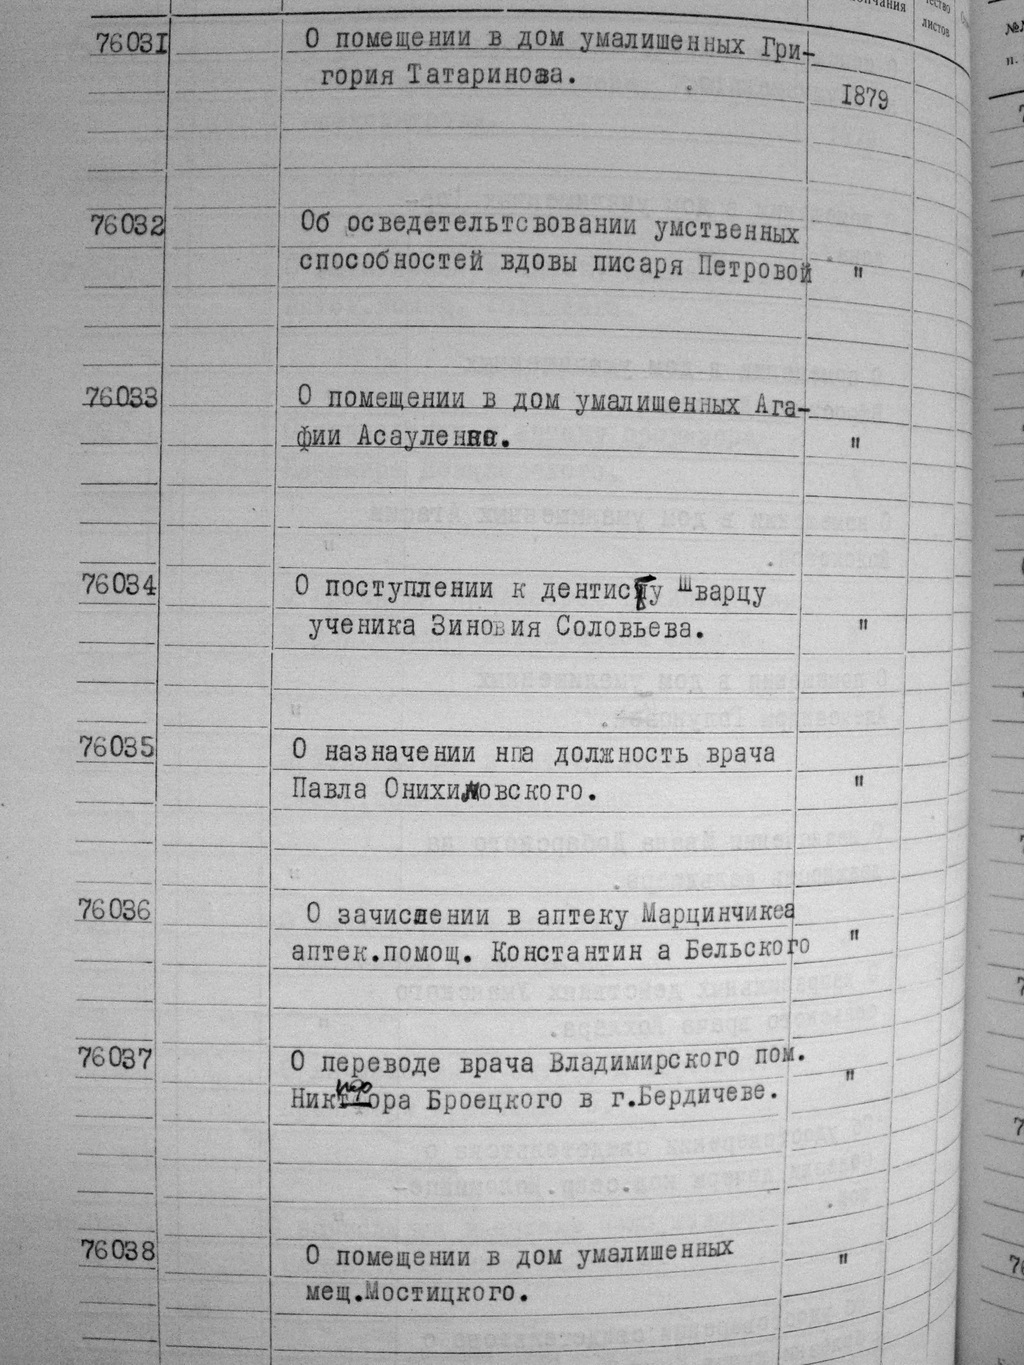 76031 О помещении в дом умалишенных Гри-
гория Татаринова.
1879
76032 Об осведетельтсвовании умственных
способностей вдовы писаря Петровой "
76033 О помещении в дом умалишенных Ага-
фии Асауленко. "
76034 О поступлении к дентисту Шварцу
ученика Зиновия Соловьева. "
76035 О назначении нпа должность врача
Павла Онихимовского. "
76036 О зачислении в аптеку Марцинчикеа
аптек.помощ. Константин а Бельского "
76037 О переводе врача Владимирского пом.
Никтора Броецкого в г.Бердичеве. "
76038 О помещении в дом умалишенных "
мещ.Мостицкого.
листов